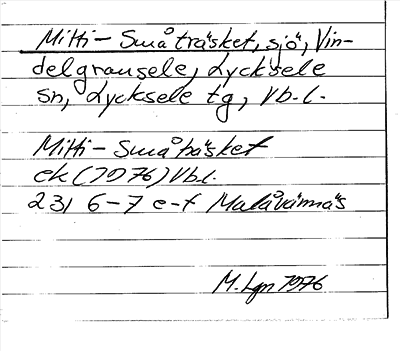 Mitti-Småträsket, sjö, Vin-
delgransele, Lycksele
sn, Lycksele tg, Vb.l.
Mitti-Småträsket
ek (1976) Vb.l.
23I 6-7 e-f Malåvännäs
M. Lgn 1976